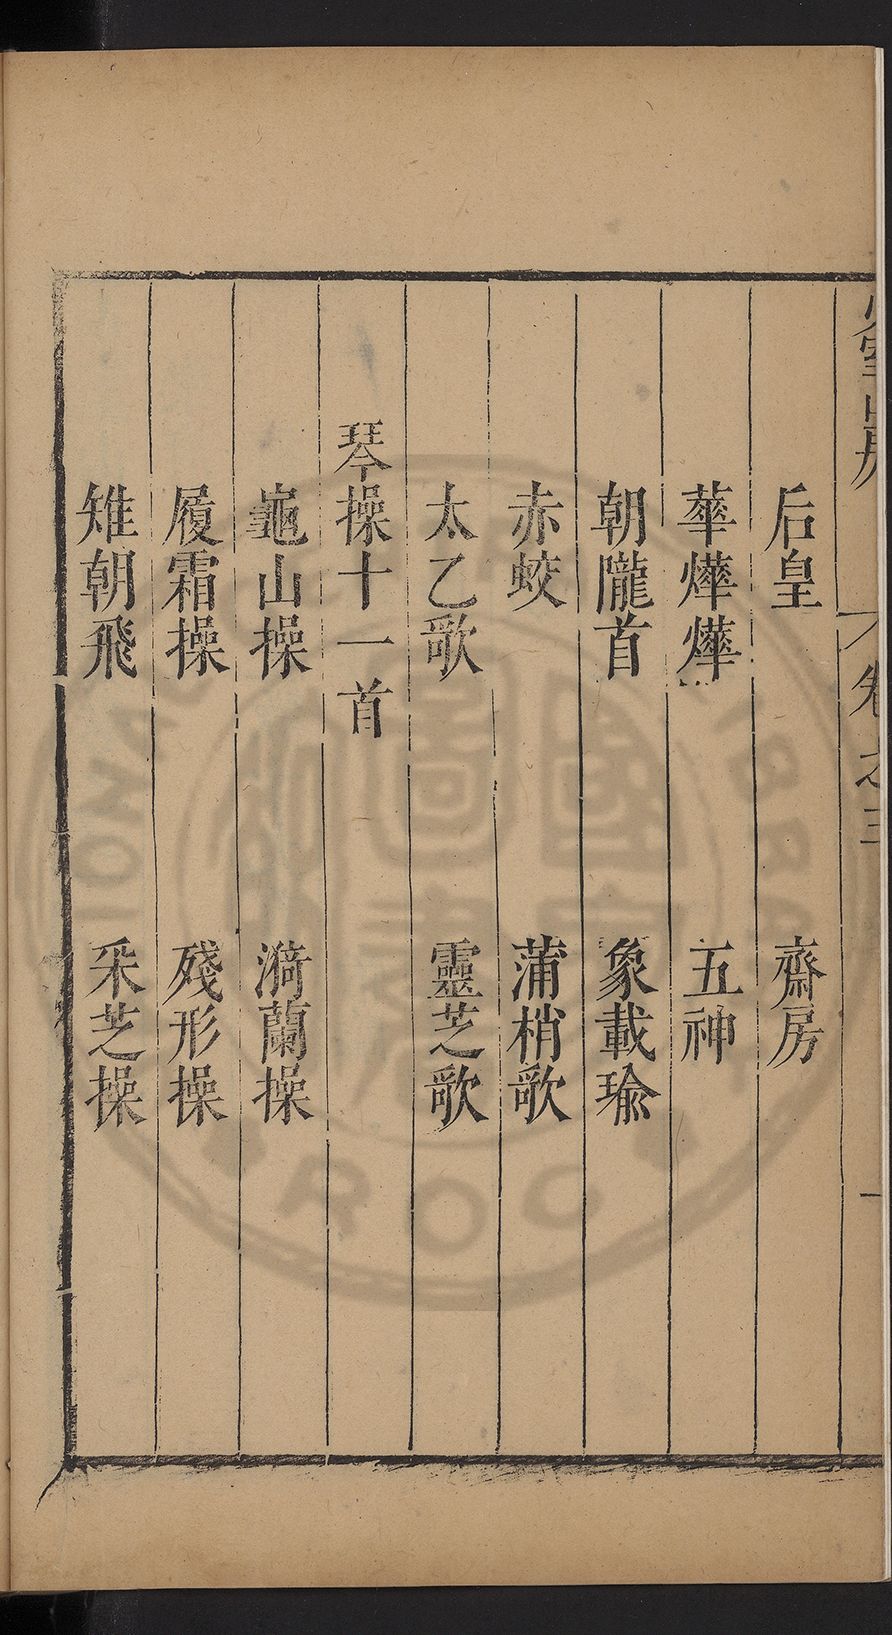 卷之三
后皇　齋房
華爗爗　五神
朝隴首　象載瑜
赤蛟　蒲梢歌
太乙歌　靈芝歌
琴操十一首
龜山操　漪蘭操
履霜操　殘形操
雉朝飛　采芝操